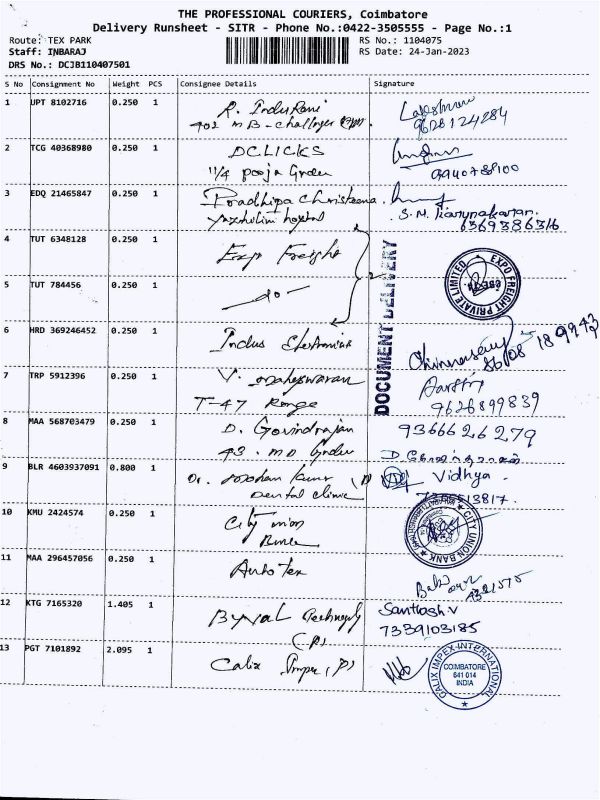 THE PROFESSIONAL COURIERS, Coimbatore
Delivery Runsheet - SITR - Phone No.:0422-3505555 - Page No.:1
Route: TEX PARK
RS No.: 1104075
Staff: INBARAJ
RS Date: 24-Jan-2023
DRS No.: DCJB110407501
S No Consignment No Weight PCS Consignee Details Signature
1 UPT 8102716 0.250 1 R. Indu Rani
402 MB - 9628124284
2 TCG 40368980 0.250 1 D.CLICKS
11/4 pooja Garden 9940788100
3 EDQ 21465847 0.250 1 Pradhipa Christeena
hostel S.M.
6369386316
4 TUT 6348128 0.250 1 Exp Freight
EXPO FREIGHT PRIVATE LIMITED
DOCUMENT DELIVERY
5 TUT 784456 0.250 1 - do -
6 HRD 369246452 0.250 1 Indus Electronics
7 TRP 5912396 0.250 1 V. maheswaran Aarthy
T-47 Range 9626899839
8 MAA 568703479 0.250 1 D. Govindrajan 9366626279
43. MD Garden
9 BLR 4603937091 0.800 1 Dr. Vidhya
Dental clinic
10 KMU 2424574 0.250 1 City union
Bank
CITY UNION BANK
11 MAA 296457056 0.250 1 Auto Tex
12 KTG 7165320 1.405 1 Technology Santhosh.V
(P) 7339103185
13 PGT 7101892 2.095 1 Calix Impex (P)
CALIX IMPEX INTERNATIONAL
COIMBATORE
641 014
INDIA